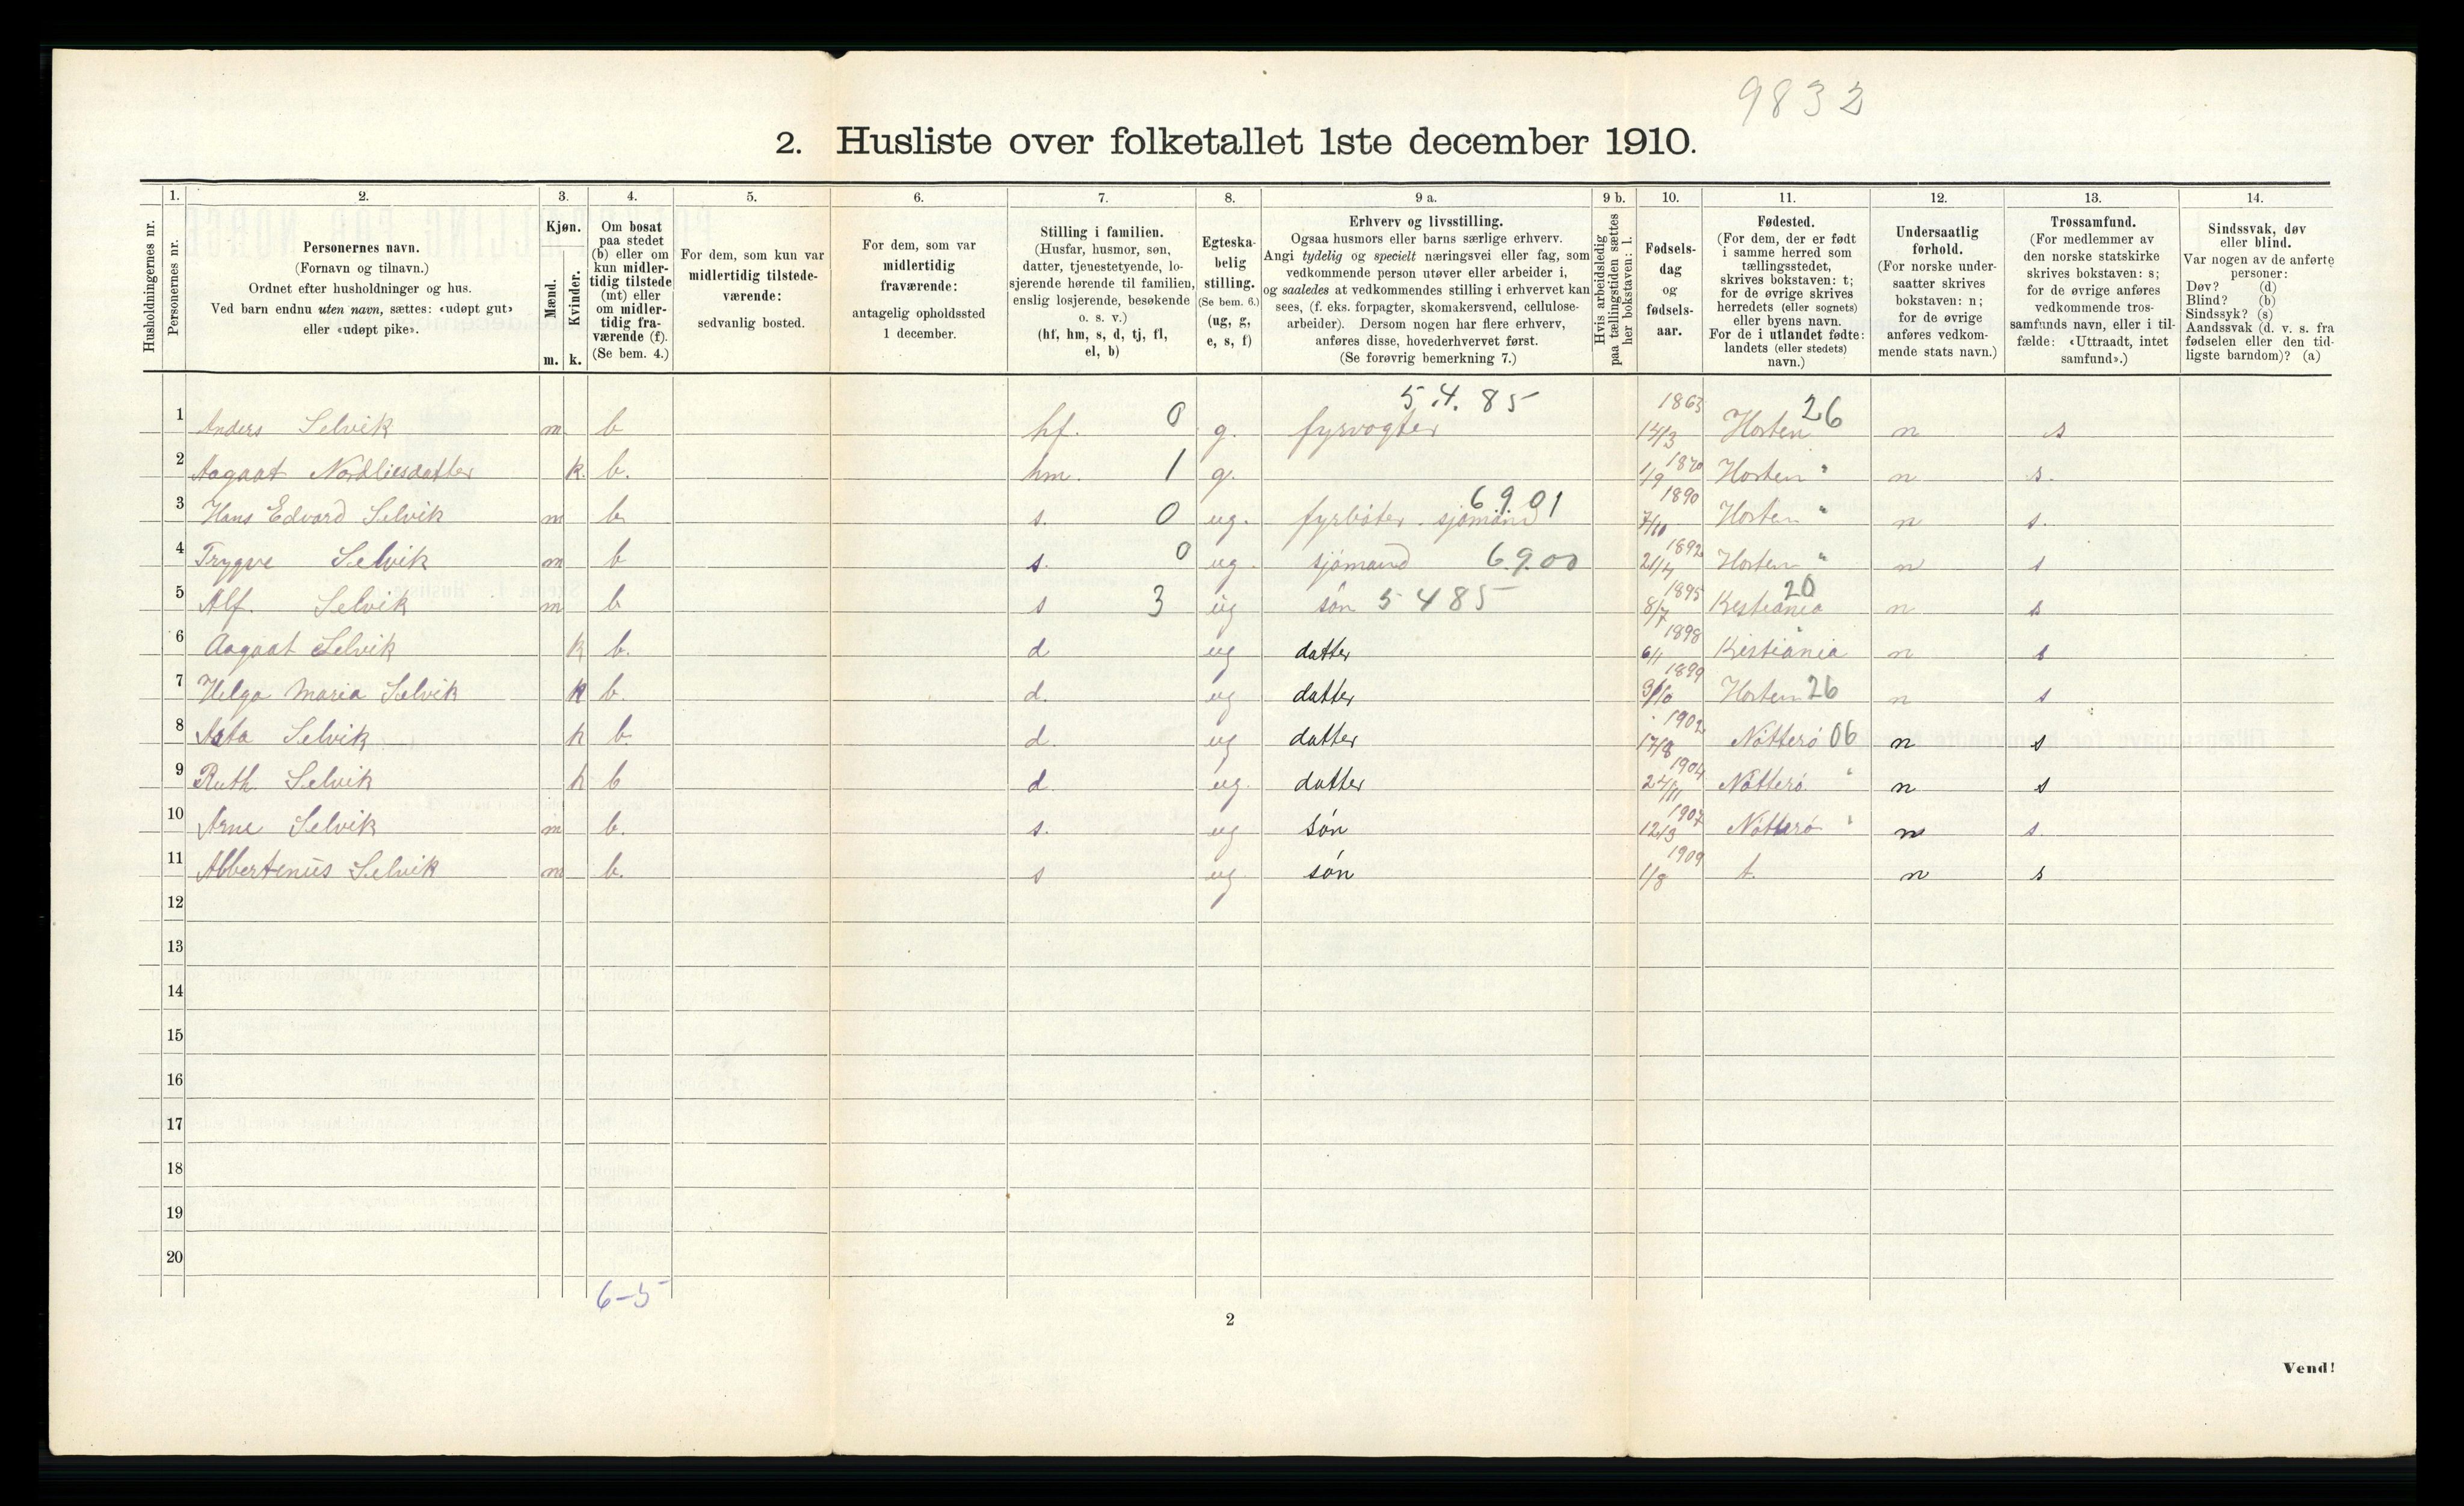 9832
2. Husliste over folketallet 1ste december 1910.
1. 2. 3. 4. 5. 6. 7. 8. 9 a. 9 b. 10. 11. 12. 13. 14.
Husholdningernes nr.
Personernes nr.
Personernes navn.
(Fornavn og tilnavn.)
Ordnet efter husholdninger og hus.
Ved barn endnu uten navn, sættes: «udøpt gut»
eller «udøpt pike».
Kjøn.
Mænd.
Kvinder.
m. k.
Om bosat
paa stedet
(b) eller om
kun midler-
tidig tilstede
(mt) eller
om midler-
tidig fra-
værende (f).
(Se bem. 4.)
For dem, som kun var
midlertidig tilstede-
værende:
sedvanlig bosted.
For dem, som var
midlertidig
fraværende:
antagelig opholdssted
1 december.
Stilling i familien.
(Husfar, husmor, søn,
datter, tjenestetyende, lo-
sjerende hørende til familien,
enslig losjerende, besøkende
o. s. v.)
(hf, hm, s, d, tj, fl,
el, b)
Egteska-
belig
stilling.
(Se bem. 6.)
(ug, g,
e, s, f)
Erhverv og livsstilling.
Ogsaa husmors eller barns særlige erhverv.
Angi tydelig og specielt næringsvei eller fag, som
vedkommende person utøver eller arbeider i,
og saaledes at vedkommendes stilling i erhvervet kan
sees, (f. eks. forpagter, skomakersvend, cellulose-
arbeider). Dersom nogen har flere erhverv,
anføres disse, hovederhvervet først.
(Se forøvrig bemerkning 7.)
Hvis arbeidsledig
paa tællingstiden sættes
her bokstaven: l.
Fødsels-
dag
og
fødsels-
aar.
Fødested.
(For dem, der er født
i samme herred som
tællingsstedet,
skrives bokstaven: t;
for de øvrige skrives
herredets (eller sognets)
eller byens navn.
For de i utlandet fødte:
landets (eller stedets)
navn.)
Undersaatlig
forhold.
(For norske under-
saatter skrives
bokstaven: n;
for de øvrige
anføres vedkom-
mende stats navn.)
Trossamfund.
(For medlemmer av
den norske statskirke
skrives bokstaven: s;
for de øvrige anføres
vedkommende tros-
samfunds navn, eller i til-
fælde: «Uttraadt, intet
samfund».)
Sindssvak, døv
eller blind.
Var nogen av de anførte
personer:
Døv? (d)
Blind? (b)
Sindssyk? (s)
Aandssvak (d. v. s. fra
fødselen eller den tid-
ligste barndom)? (a)
5.4.85
1 Anders Selvik m b hf. 0 g. fyrvogter 14/3 1863 Horten 26 n s
2 Aagaat Nordliesdatter k. b. hm. 1 g. 1/9 1870 Horten " n s.
3 Hans Edvard Selvik m b s. 0 ug. fyrbøter. sjømand 6.9.01 7/10 1890 Horten " n s.
4 Trygve Selvik m b s. 0 ug. sjømand 6.9.00 21/4 1892 Horten " n s
5 Alf. Selvik m b s 3 ug søn 5485 8/7 1895 Kristiania 20 n s
6 Aagaat Selvik k b. d ug datter 6/1 1898 Kristiania " n s
7 Helga Maria Selvik k b. d. ug datter 1899 Horten 26 n s
8 Asta Selvik k b. d. ug datter 17/8 1902 Nøtterø 06 n s
9 Ruth Selvik k b d. ug. datter 24/11 1904 Nøtterø " n s
10 Arne Selvik m b. s. ug søn 12/3 1907 Nøtterø " n s
11 Albertenius Selvik m b. s ug søn 1/8 1909 t. n s
12
13
14
15
16
17
18
19
20
6-5
2
Vend!